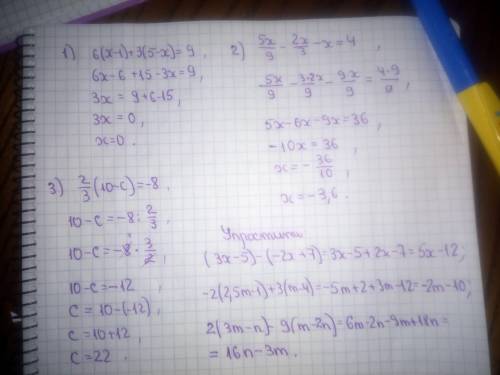 1) 6(x-1)+3(5-x)=9,
6x-6+15-3x=9,
3x=9+6-15,
3x=0,
x=0.
2) 5x/9 - 2x/3 - x = 4,
5x/9 - 3·2x/9 - 9x/9 = 4·9/9,
5x-6x-9x=36,
-10x=36,
x=-36/10,
x=-3,6.
3) 2/3(10-c)=-8,
10-c=-8:2/3,
10-c=-8·3/2,
10-c=-12
c=10-(-12),
c=10+12,
c=22.
Упростити
(3x-5)-(-2x+7)=3x-5+2x-7=5x-12;
-2(2,5m-1)+3(m-4)=-5m+2+3m-12=-2m-10;
2(3m-n)-9(m-2n)=6m-2n-9m+18n=
=16n-3m.